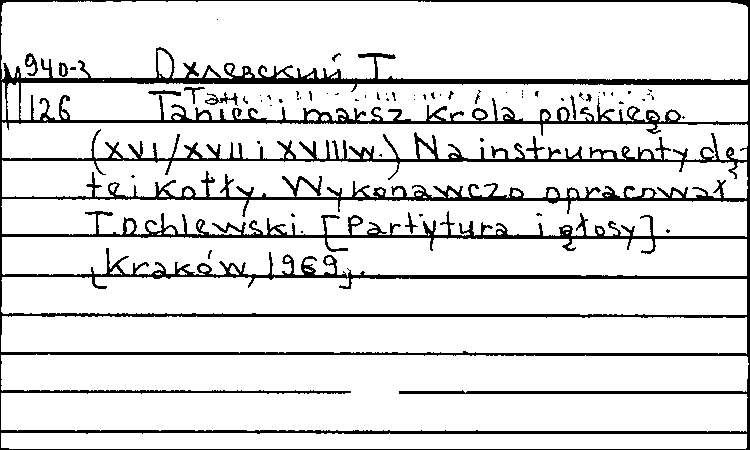 М940-3 Охлевский, Т.
126 Taniec i marsz Króla polskiego.
(XVI/XVII i XVIIIw.) Na instrumenty dę-
te i Kotły. Wykonawczo opracował
T. Ochlewski. [Partytura i głosy].
[Kraków, 1969].